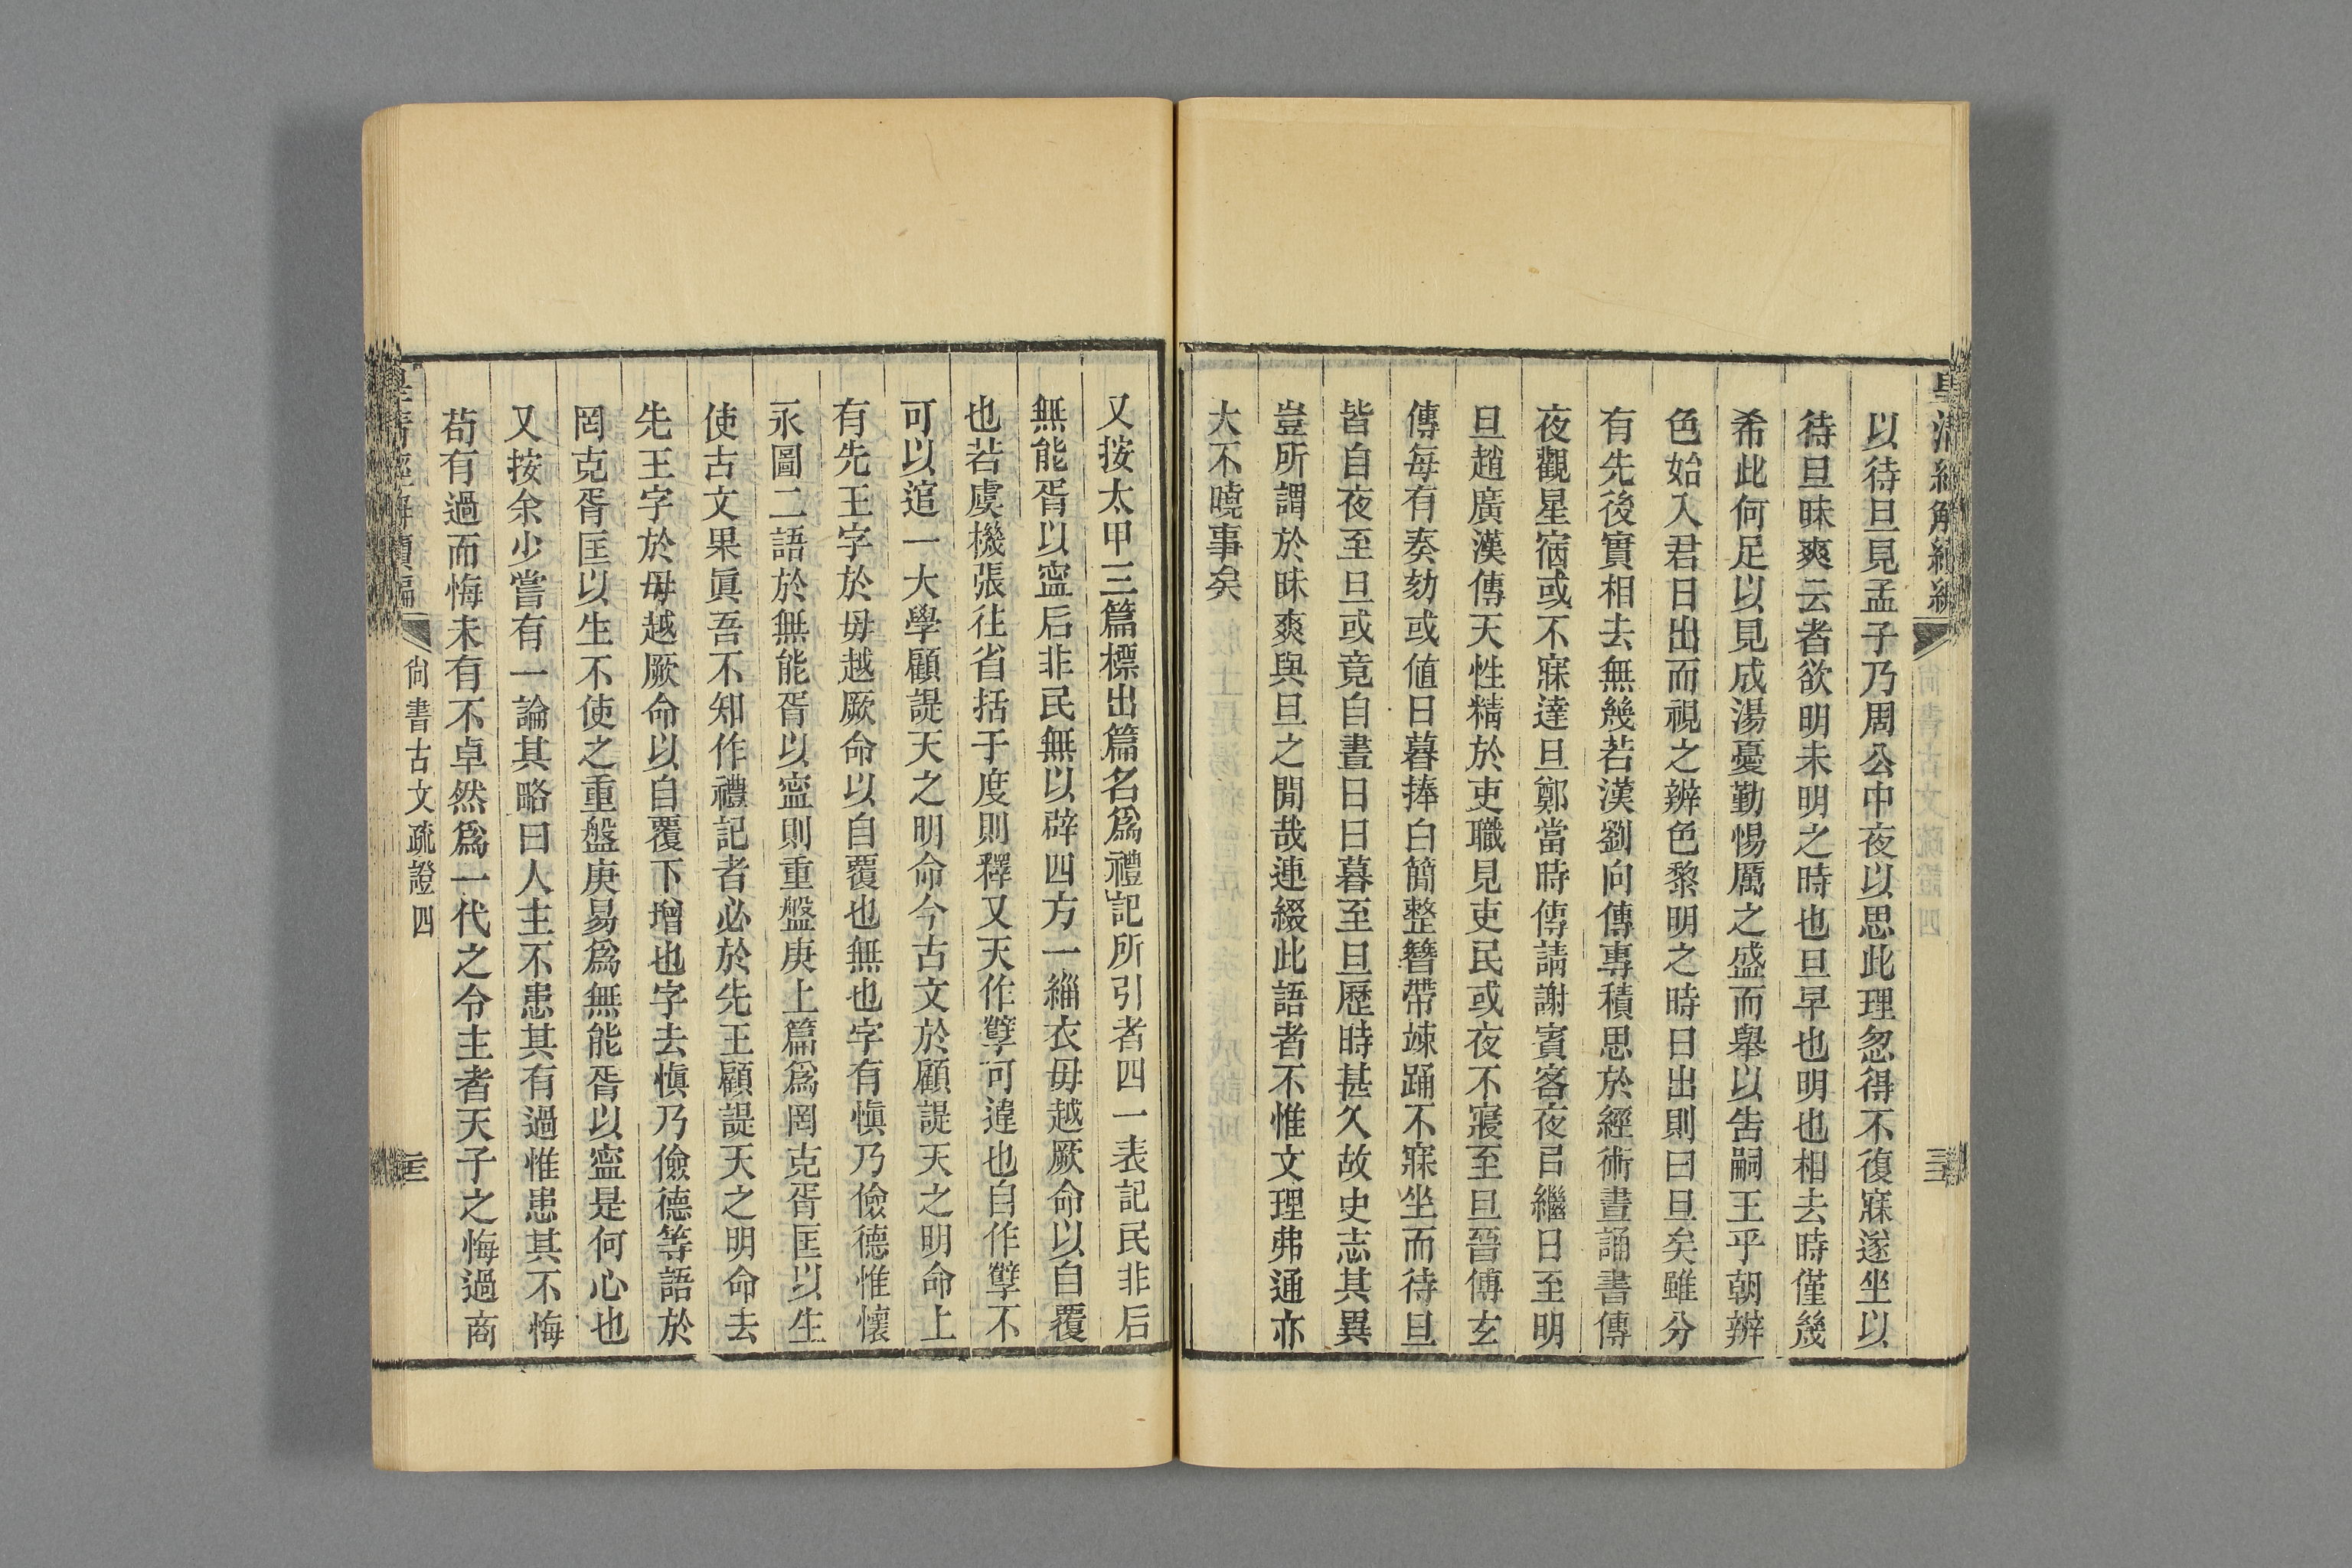 以待旦見孟子乃周公中夜以思此理忽得不復寐遂坐以
待旦昧爽云者欲明未明之時也旦早也明也相去時僅幾
希此何足以見成湯憂勤惕厲之盛而舉以告嗣王乎朝辨
色始入君日出而視之辨色黎明之時日出則曰旦矣雖分
有先後實相去無幾若漢劉向傳專積思於經術晝誦書傳
夜觀星宿或不寐達旦鄭當時傳請謝賓客夜㠯繼日至明
旦趙廣漢傳天性精於吏職見吏民或夜不寢至旦晉傅玄
傳每有奏劾或値日暮捧白簡整簪帶竦踊不寐坐而待旦
皆自夜至旦或竟自晝日日暮至旦歷時甚久故史志其異
豈所謂於昧爽與旦之閒哉連綴此語者不惟文理弗通亦
大不曉事矣
又按太甲三篇標出篇名爲禮記所引者四一表記民非后
無能胥以寍后非民無以辟四方一緇衣毋越厥命以自覆
也若虞機張往省括于度則釋又天作孼可違也自作孼不
可以逭一大學顧諟天之明命今古文於顧諟天之明命上
有先王字於毋越厥命以自覆也無也字有愼乃儉德惟懷
永圖二語於無能胥以寍則重盤庚上篇爲罔克胥匡以生
使古文果眞吾不知作禮記者必於先王顧諟天之明命去
先王字於毋越厥命以自覆下增也字去愼乃儉德等語於
罔克胥匡以生不使之重盤庚易爲無能胥以寍是何心也
又按余少嘗有一論其略曰人主不患其有過惟患其不悔
苟有過而悔未有不卓然爲一代之令主者天子之悔過商
尙書古文疏證四